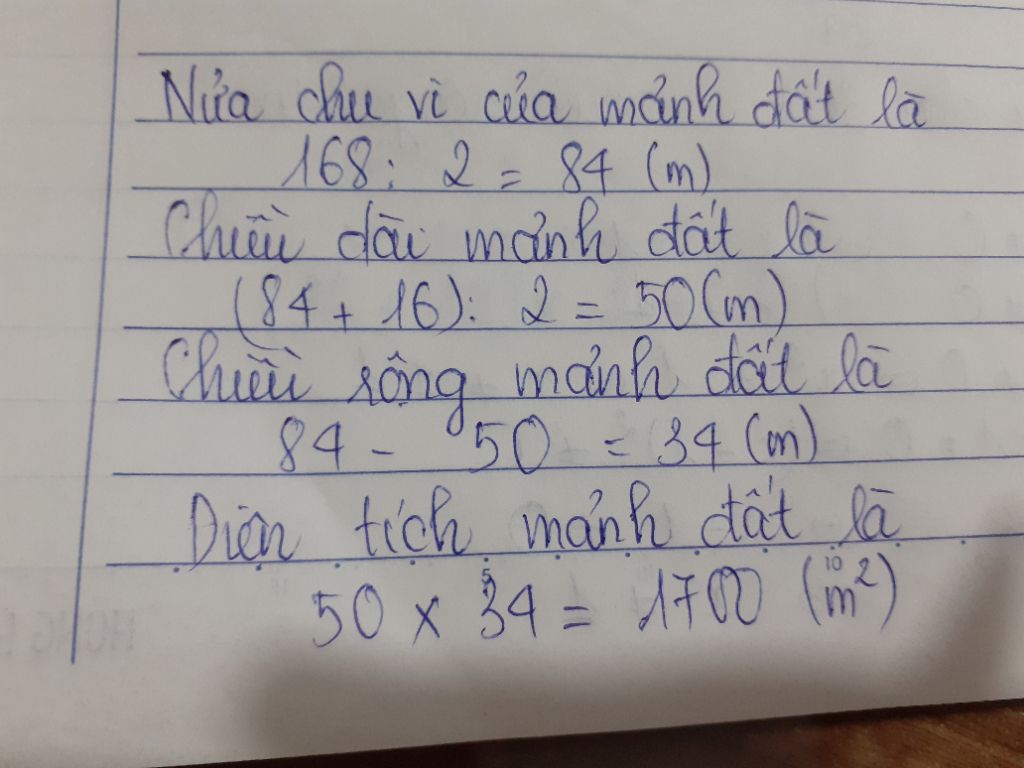 Nửa chu vi của mảnh đất là
168 : 2 = 84 (m)
Chiều dài mảnh đất là
(84 + 16) : 2 = 50 (m)
Chiều rộng mảnh đất là
84 - 50 = 34 (m)
Diện tích mảnh đất là
50 x 34 = 1700 (m²)